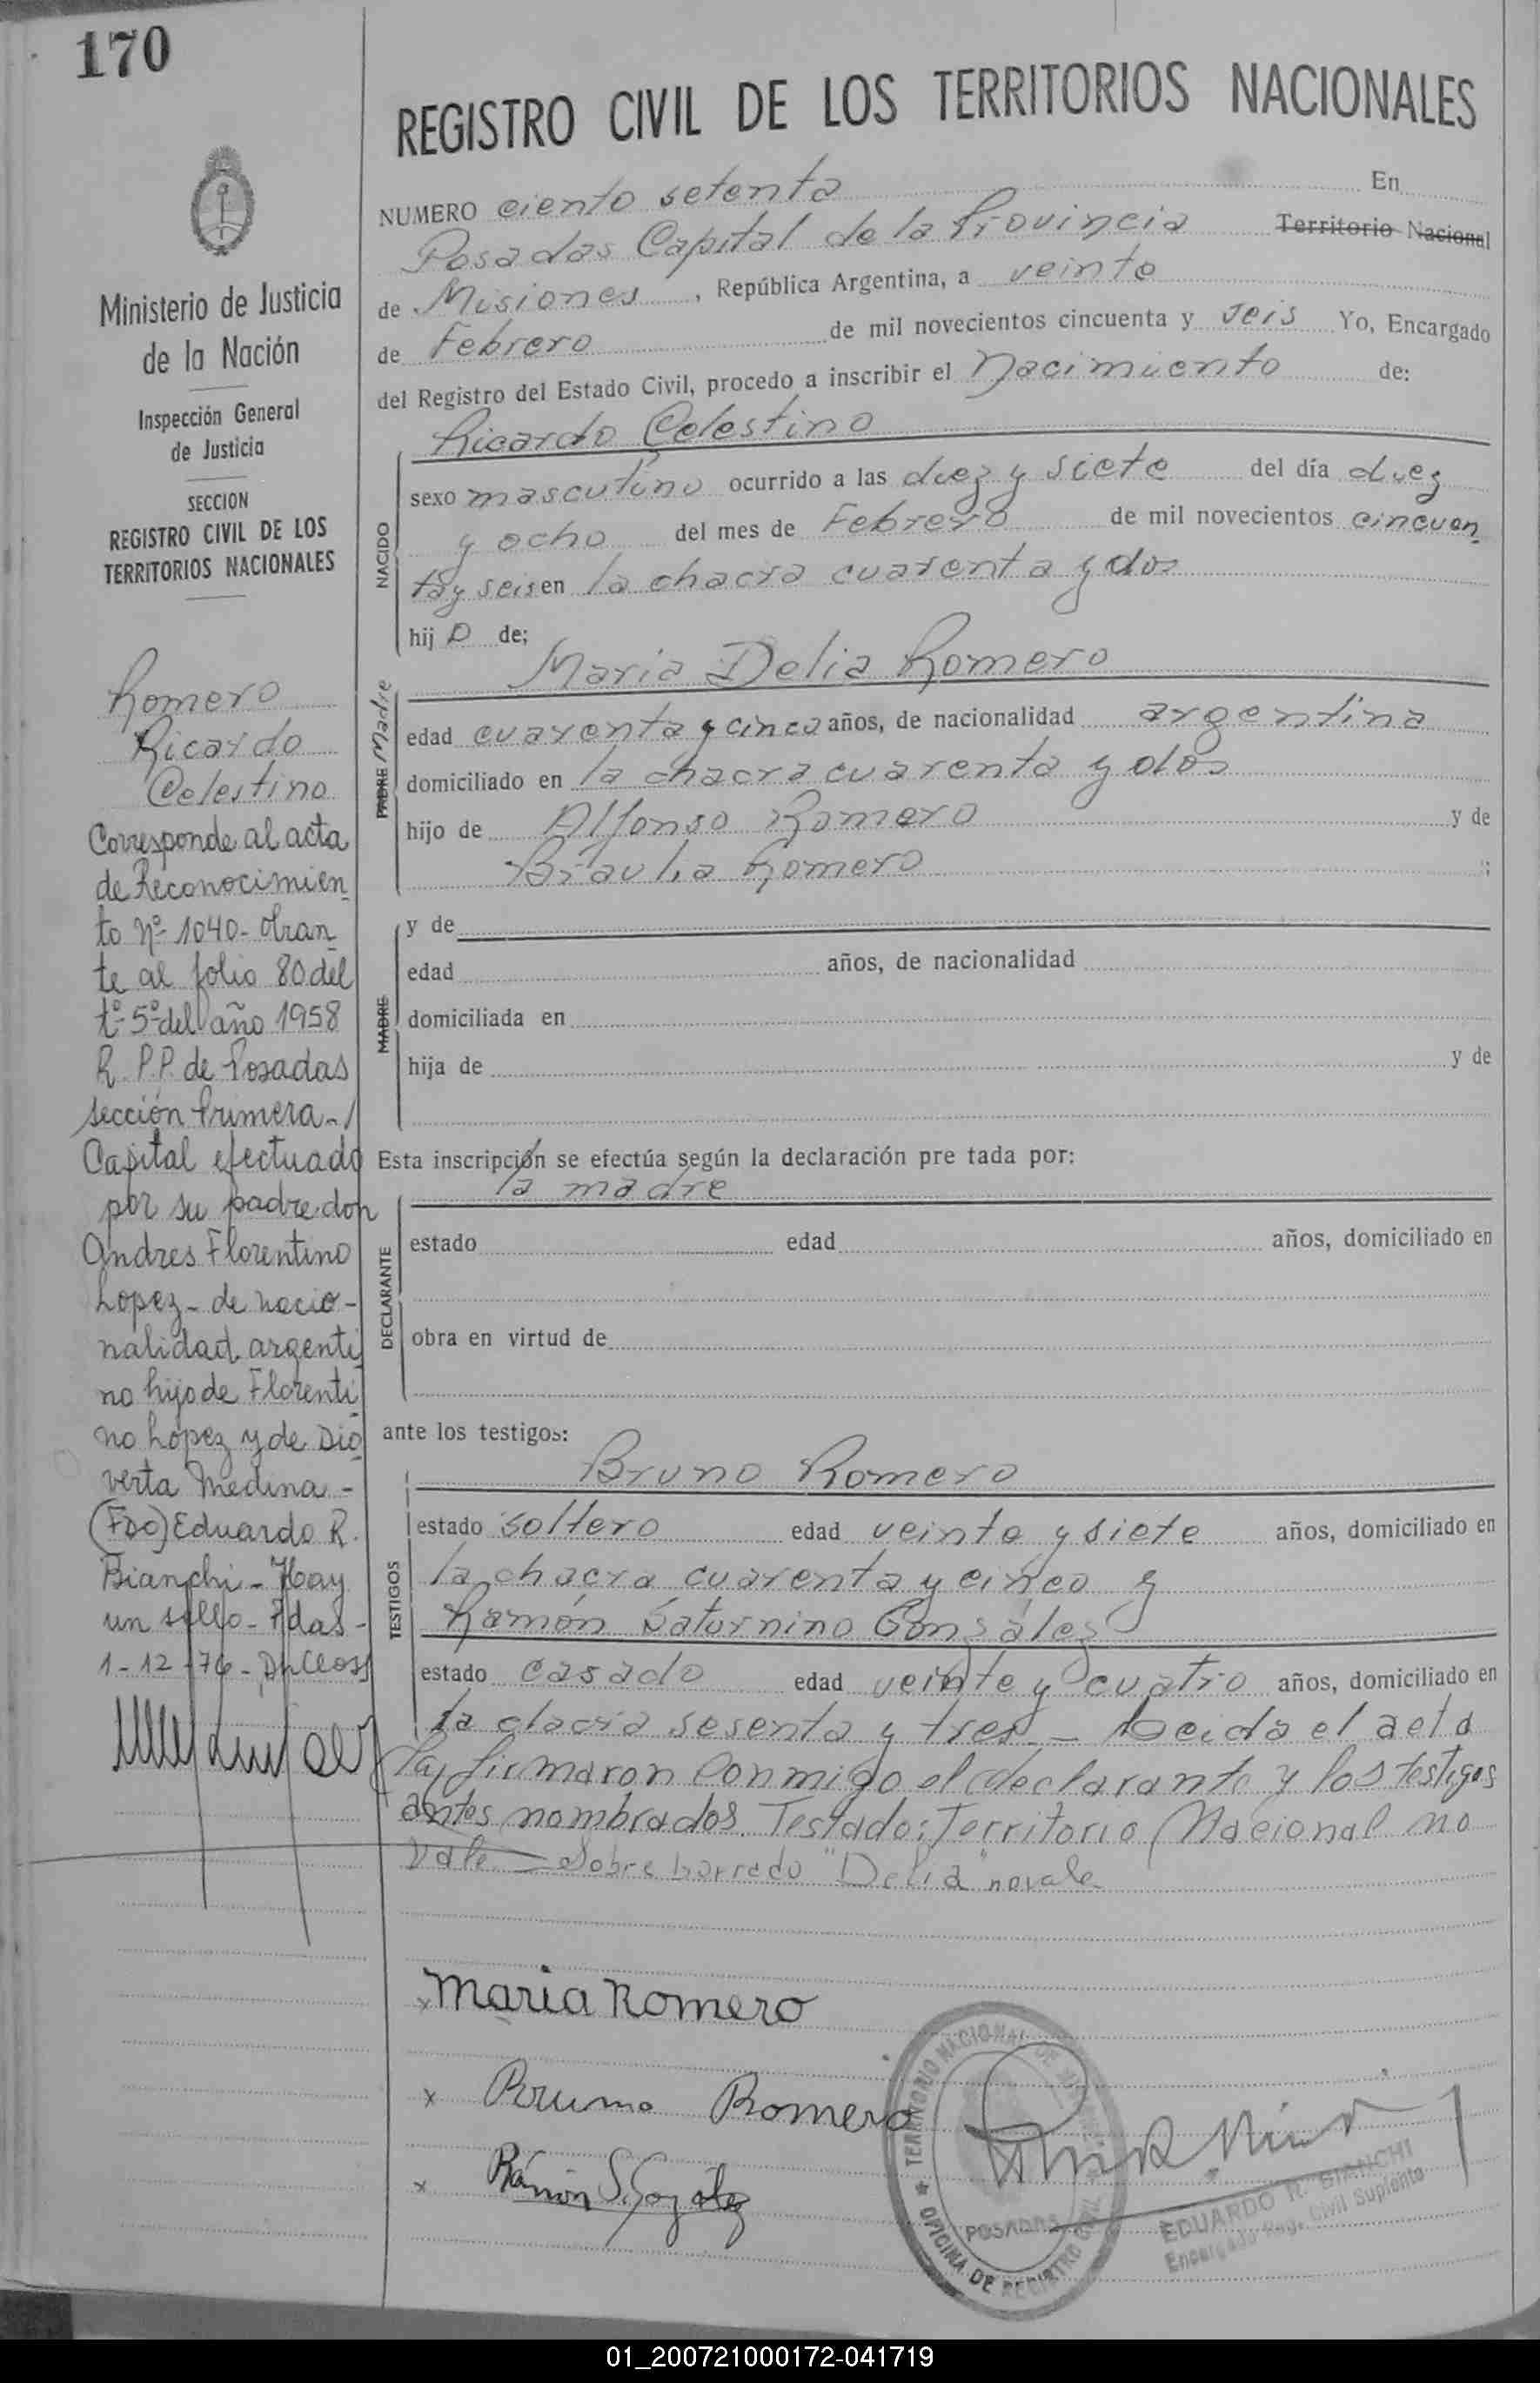 170
REGISTRO CIVIL DE LOS TERRITORIOS NACIONALES
NUMERO ciento setenta En
Posadas Capital de la Provincia Territorio Nacional
de Misiones, República Argentina, a veinte
de Febrero de mil novecientos cincuenta y seis Yo, Encargado
del Registro del Estado Civil, procedo a inscribir el Nacimiento de:
Ricardo Celestino
NACIDO
sexo masculino ocurrido a las diez y siete del día diez
y ocho del mes de Febrero de mil novecientos cincuen
ta y seis en la chacra cuarenta y dos
hijo de;
Maria Delia Romero
PADRE Madre
edad cuarenta y cinco años, de nacionalidad argentina
domiciliado en la chacra cuarenta y dos
hijo de Alfonso Romero y de
Braulia Romero ;
MADRE
y de
edad años, de nacionalidad
domiciliada en
hija de y de
Esta inscripción se efectúa según la declaración pre tada por:
la madre
DECLARANTE
estado edad años, domiciliado en
obra en virtud de
ante los testigos:
Bruno Romero
TESTIGOS
estado soltero edad veinte y siete años, domiciliado en
la chacra cuarenta y cinco y
Ramón Saturnino González
estado casado edad veinte y cuatro años, domiciliado en
la chacra sesenta y tres.- Leida el acta
la firmaron conmigo el declarante y los testigos
antes nombrados. Testado: Territorio Nacional no
vale - Sobre borrado "Delia" no vale
Maria Romero
x Bruno Romero
x Ramón S. Gozalez
TERRITORIO NACIONAL DE MISIONES
OFICINA DE REGISTRO CIVIL
POSADAS
EDUARDO R. BIANCHI
Encargado Reg. Civil Suplente
Ministerio de Justicia
de la Nación
Inspección General
de Justicia
SECCION
REGISTRO CIVIL DE LOS
TERRITORIOS NACIONALES
Romero
Ricardo
Celestino
Corresponde al acta
de Reconocimien
to Nº 1040- obran
te al folio 80 del
tº 5º del año 1958
R. P.P. de Posadas
sección Primera-
Capital efectuado
por su padre don
Andres Florentino
Lopez - de nacio-
nalidad argenti
no hijo de Florenti
no Lopez y de Dio
verta Medina -
(FDO) Eduardo R.
Bianchi - Hay
un sello - Pdas -
1-12-76-
01_200721000172-041719